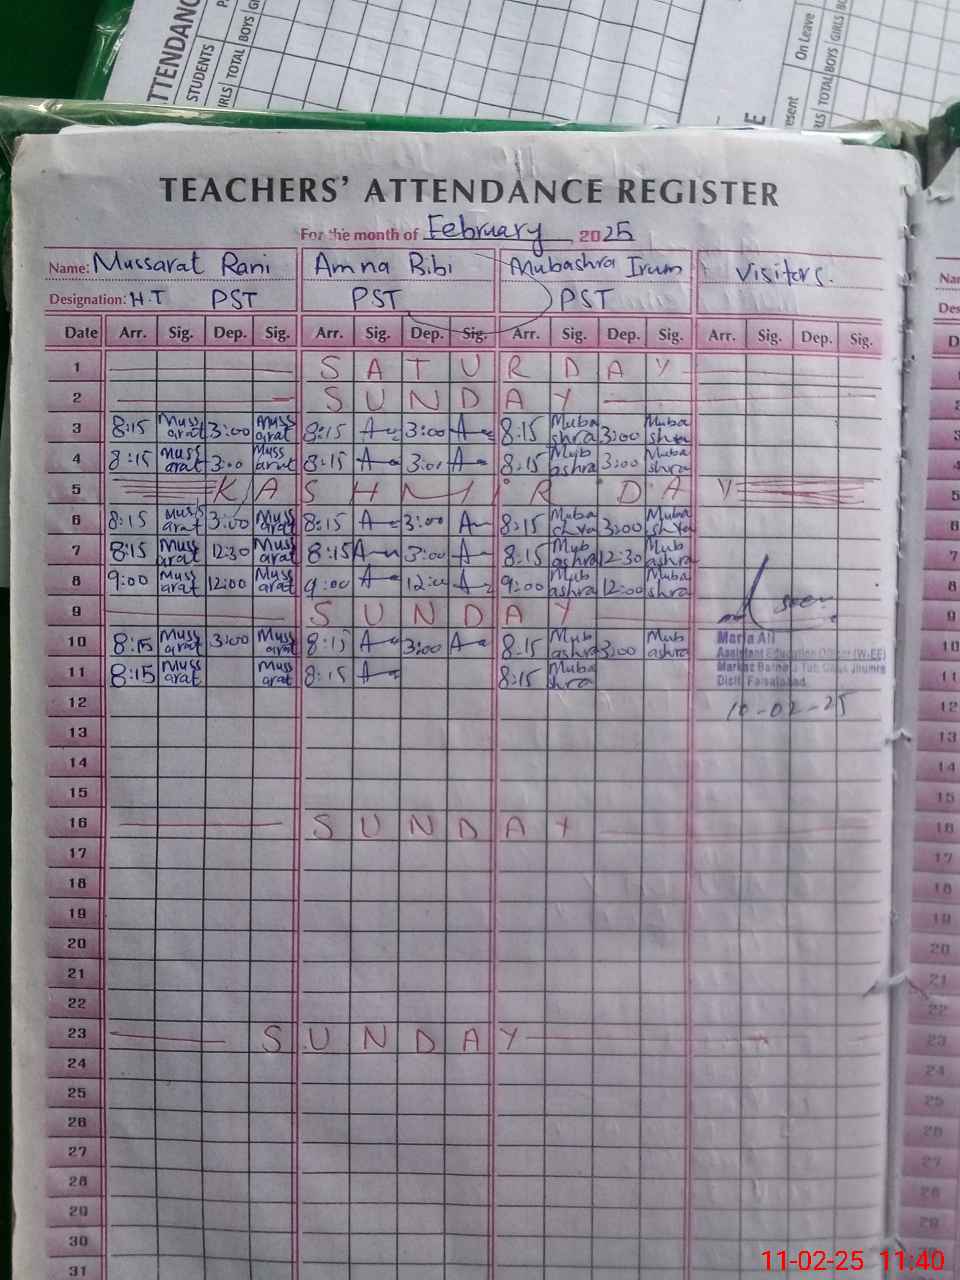 ATTENDANCE
STUDENTS
GIRLS TOTAL BOYS
On Leave
TOTAL BOYS GIRLS
TEACHERS' ATTENDANCE REGISTER
For the month of February 2025
Name: Mussarat Rani Amna Bibi Mubashra Irum Visitors.
Designation: H.T PST PST PST
Date Arr. Sig. Dep. Sig. Arr. Sig. Dep. Sig. Arr. Sig. Dep. Sig. Arr. Sig. Dep. Sig.
1 SATURDAY
2 SUNDAY
3 8:15 Mussarat 3:00 Mussarat 8:15 A 3:00 A 8:15 Mubashra 3:00 Mubashra
4 8:15 Mussarat 3:00 Mussarat 8:15 A 3:00 A 8:15 Mubashra 3:00 Mubashra
5 KASHMIR DAY
6 8:15 Mussarat 3:00 Mussarat 8:15 A 3:00 A 8:15 Mubashra 3:00 Mubashra
7 8:15 Mussarat 12:30 Mussarat 8:15 A 3:00 A 8:15 Mubashra 12:30 Mubashra
8 9:00 Mussarat 12:00 Mussarat 9:00 A 12:00 A 9:00 Mubashra 12:00 Mubashra
9 SUNDAY seen
10 8:15 Mussarat 3:00 Mussarat 8:15 A 3:00 A 8:15 Mubashra 3:00 Mubashra Maria Ali
Assistant Education Officer (W-EE)
11 8:15 Mussarat Mussarat 8:15 A 8:15 Mubashra Markaz
Distt. Faisalabad
12 10-02-25
13
14
15
16 SUNDAY
17
18
19
20
21
22
23 SUNDAY
24
25
26
27
28
29
30
31
11-02-25 11:40